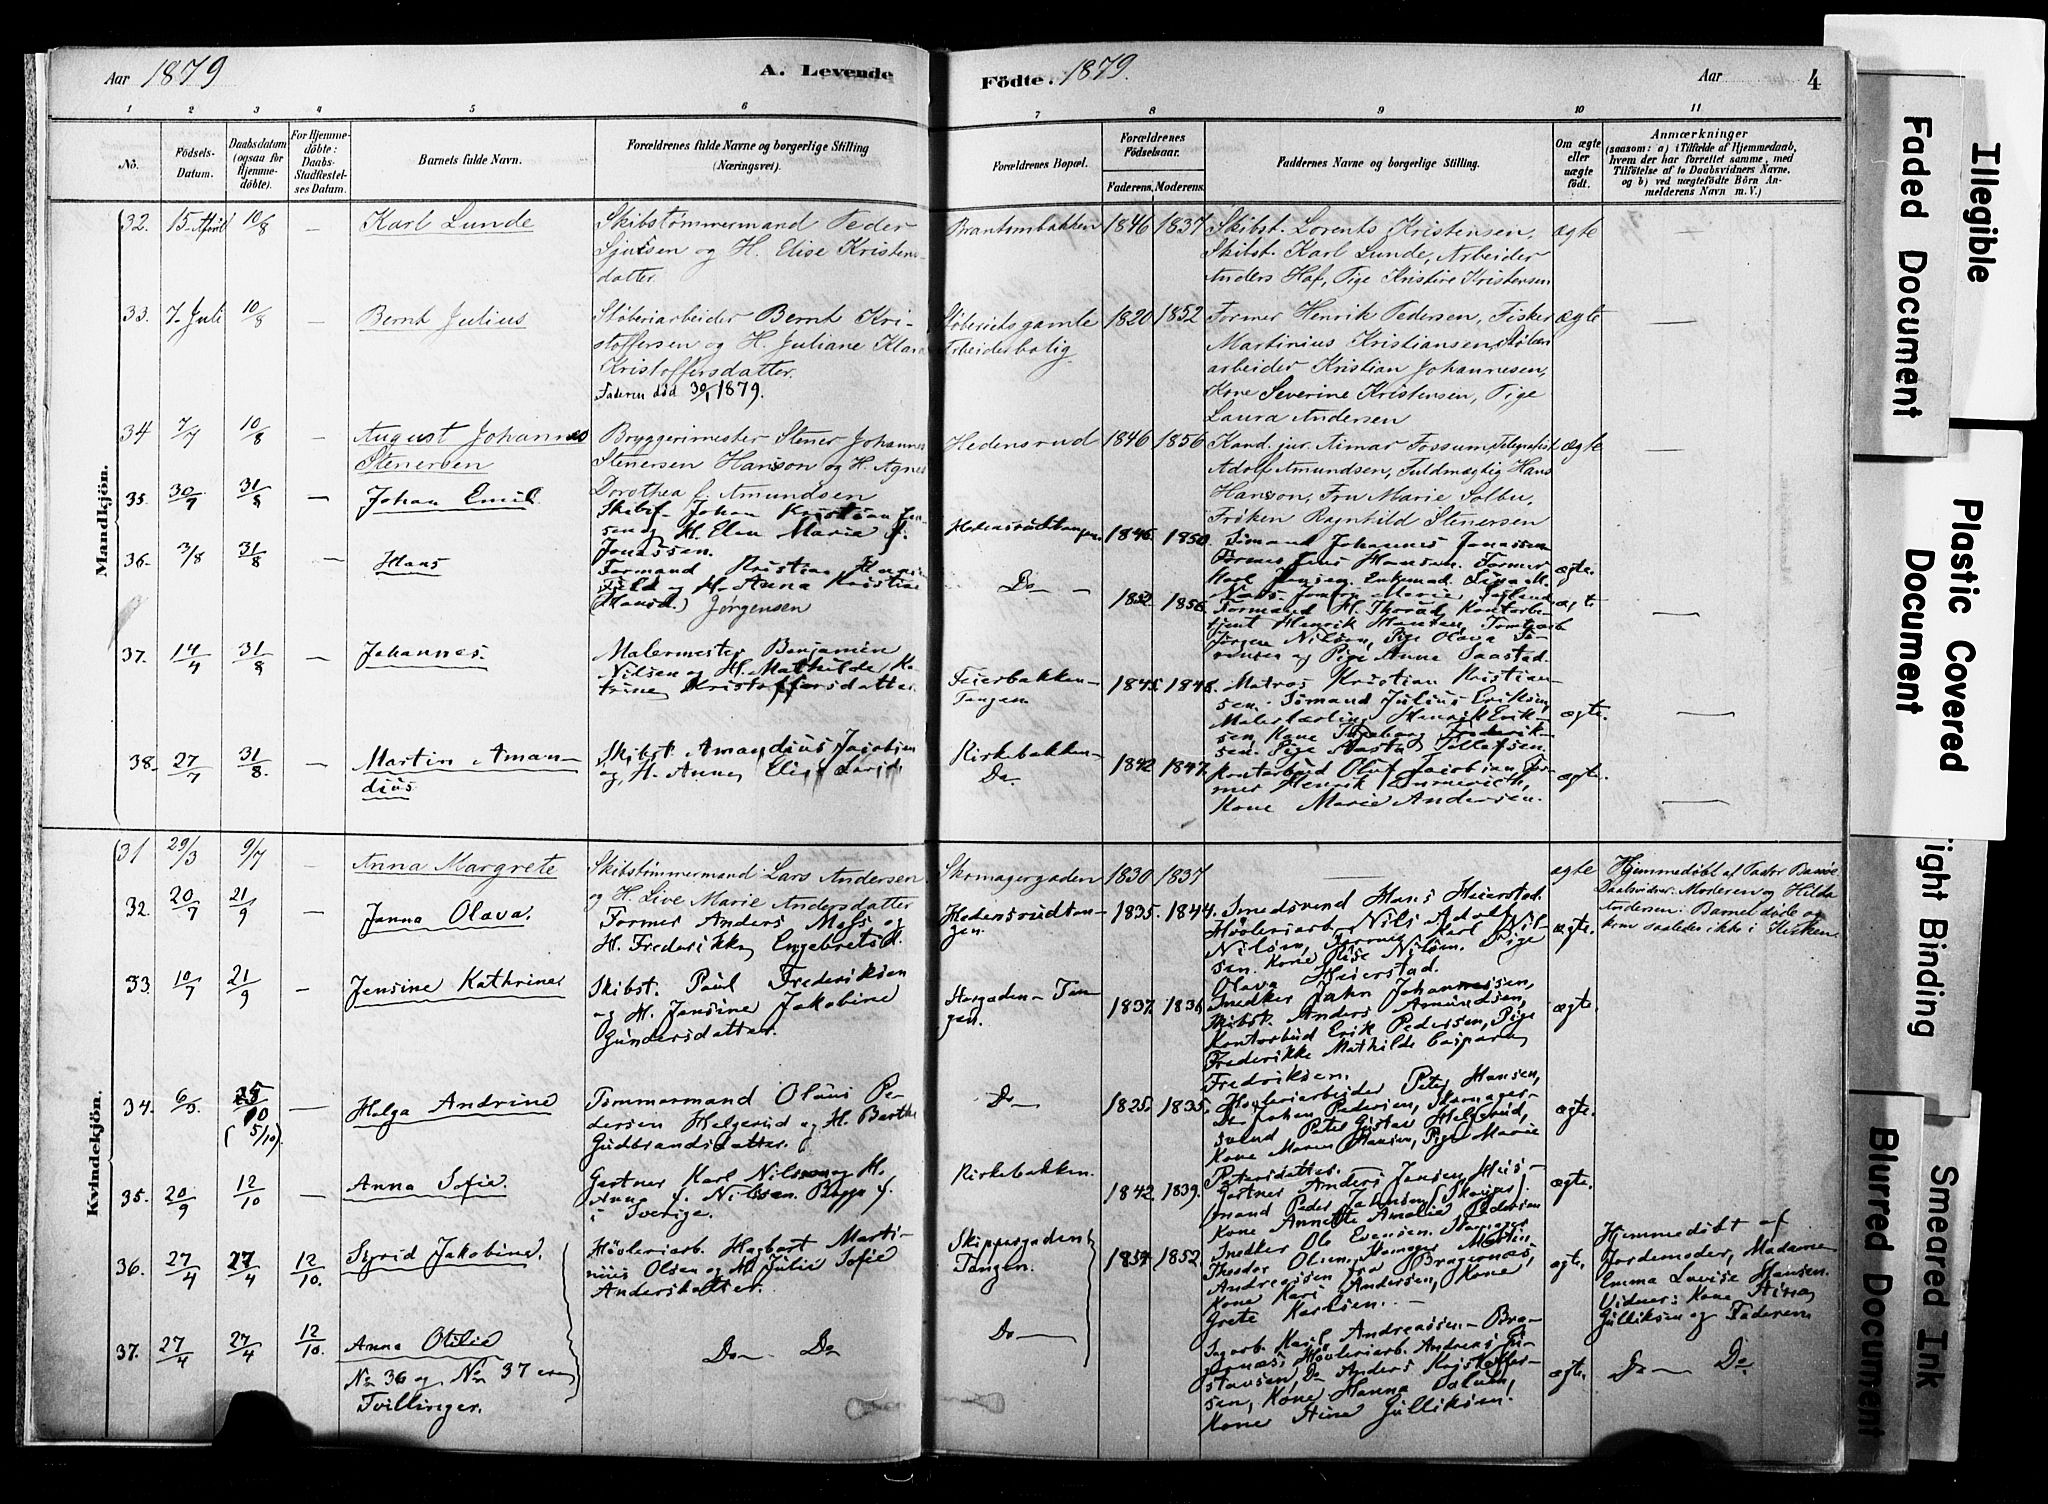 Aar 1879 A. Levende
Födte. 1879. Aar 4
1 2 3 4 5 6 7 8 9 10 11
No.
Födsels-Datum.
Daabsdatum (ogsaa for Hjemme-døbte).
For Hjemme-döbte: Daabs-Stadfæstel-ses Datum.
Barnets fulde Navn.
Forældrenes fulde Navne og borgerlige Stilling (Næringsvei).
Forældrenes Bopæl.
Forældrenes Födselsaar.
Faderens. Moderens.
Faddernes Navne og borgerlige Stilling.
Om ægte eller uægte födt.
Anmærkninger
(saasom: a) i Tilfælde af Hjemmedaab,
hvem der har forrettet samme, med
Tilföielse af to Daabsvidners Navne,
og b) ved uægtefödte Börn An-
melderens Navn m. V.)
Mandkjön.
32. 15 April 10/8 — Karl Lunde
Skibstømmermand Peder
og H. Elise Kristens-
datter
Brantenbakken 1846 1837
Skibst. Lorents Kristensen,
Skibst. Karl Lunde, Arbeider
Anders Haf, Pige Kristine Kristensen
ægte —
33. 7 Juli 10/8 — Bernt Julius
Støberiarbeider Bernt Kri-
stoffersen og H. Juliane Klara
Kristoffersdatter.
Faderen død 30/1 1879.
Støberiets gamle
Arbeiderbolig 1820 1852
Former Henrik Pedersen, Fisker
Martinius Kristiansen, Støberi
arbeider Kristian Johannesen,
Kone Severine Kristensen, Pige
Laura Andersen
ægte —
34 7/7 10/8 — August Johannes
Stenersen
Bryggerimester Stener Johannes
Stenersen Hanson og H. Agnes
Dorothea f. Amundsen
Hedensrud 1846 1856
Kand. jur. Aimar Fossum, Telegrafist
Adolf Amundsen, Fuldmægtig Hans
Hanson, Fru Marie Solberg,
Frøken Ragnhild Stenersen
ægte —
35. 30/7 31/8 — Johan Emil
Skibst. Johan Kristian Jen-
sen og H. Elen Marie f.
Jonassen.
Hedensrudtangen. 1845 1850
Sømand Johannes Jonassen
Former Jens Hansen. Former
Karl Jensen. Enkemad.
ægte.
36. 3/8 31/8 — Hans
Formand Kristian
og H. Anna Kristine
(Hansd.) Jørgensen
Do — 1852 1856
Formand H. Kontorbe-
tjent Henrik Hansen,
Jørgen Nilsen, Pige Olava
og Pige Anne Saastad.
ægte —
37. 14/4 31/8 — Johannes.
Malermester Benjamin
Nilsen og H. Mathilde Ka-
trine Kristoffersdatter.
Feierbakken-
Tangen 1845. 1848.
Matros Kristian Kristian-
sen. Sømand Julius Eriksen,
Malerlærling Henrik Erik-
sen, Kone Frederik-
sen. Pige Aasta Tollefsen.
ægte. —
38. 27/7 31/8. — Martin Aman-
dius
Skibst. Amandius Jacobsen
og H. Anne Elise
Kirkebakken-
Do 1842 1847.
Kontorbud Oluf Jacobsen, For-
mer Henrik Emmerich,
Kone Marie Andersen.
ægte. —
Kvindekjön.
31 29/3 9/7 — Anna Margrete
Skibstømmermand Lars Andersen
og H. Live Marie Andersdatter
Skomagergaden 1830 1837 —
ægte
Hjemmedøbt af Pastor
Daabsvidner: Moderen og Hilda
Andersen. Barnet døde og
kom saaledes ikke i Kirken.
32. 20/7 21/9 — Janna Olava.
Former Anders Moss og
H. Frederikke Engebretsd.
Hedensrudtan-
gen. 1835. 1844.
Smedsvend Hans Heierstad.
Høvleriarb. Nils Adolf
Nilsen, Karl Nil-
sen. Kone Elise Nilsen. Pige
Olava Heierstad.
ægte.
33. 10/7 21/9 — Jensine Kathrine
Skibst. Paul Frederiksen
og H. Jensine Jakobine
Gundersdatter.
Storgaden - Tan-
gen. 1837. 1836
Snedker Jahn Johannessen,
Skibst. Anders Amundsen,
Kontorbud Erik Pedersen, Pige
Frederikke Mathilde Caspara
Fredriksen.
ægte.
34. 6/8 10 (5/10). — Helga Andrine
Tømmermand Olaus Pe-
dersen Helgerud og H. Berthe
Gudbrandsdatter.
Do — 1825 1835.
Høvleriarbeider Peter Hansen,
Do Johan Pedersen, Skomager-
svend Peter Gustav Helgerud,
Kone Maren Hansen, Pige Marie
Petersdatter.
ægte.
35. 20/9 12/10 — Anna Sofie.
Gartner Karl Nilsson og H.
Anna f. Nilssen. Begge f.
i Sverige.
Kirkebakken. 1842. 1839.
Gartner Anders Jensen, Hus-
mand Peder Johnsen (Skoger).
Kone Annette Amalie Pedersen
ægte.
36. 27/4 27/4 12/10. Sigrid Jakobine.
Høvleriarb. Hagbart Marti-
nius Olsen og H. Julie Sofie
Andersdatter.
Skippergaden
Tangen. 1854 1852.
Snedker Ole Evensen. Skomager
Theodor Olsen, Skomager Morten
Andreassen fra Bragernes,
Kone Kari Andersen, Kone
Grete Karlsen. —
ægte.
Hjemmedøbt af
Jordemoder, Madame
Emma Lovise Hansen.
Vidner: Kone Stina
Gulliksen og Faderen
37. 27/4 27/4 12/10. Anna Otilie
No 36 og No 37 ere
Tvillinger.
Do — Do
Do —
Sagarb. Karl Andreassen - Bra-
gernæs, Høvleriarb. Andreas Gu-
stavsen, Do Anders Kristoffer-
sen, Kone Hanna
Kone Stine Gulliksen!
ægte.
Do — Do
Illegible
Faded Document
Plastic Covered Document
Tight Binding
Smeared Ink
Blurred Document